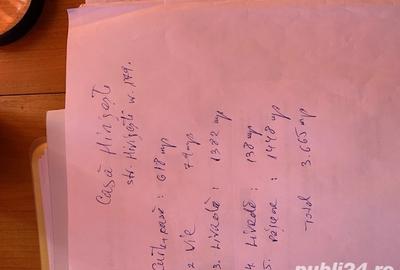 Casă Hințești
str. Hințești nr. 179.
Curte, casă : 618 mp
2 Vie 79 mp
3. Livadă : 1382 mp
4. Livadă : 138 mp
5. Pășune : 1448 mp
Total 3.665 mp
publi24.ro